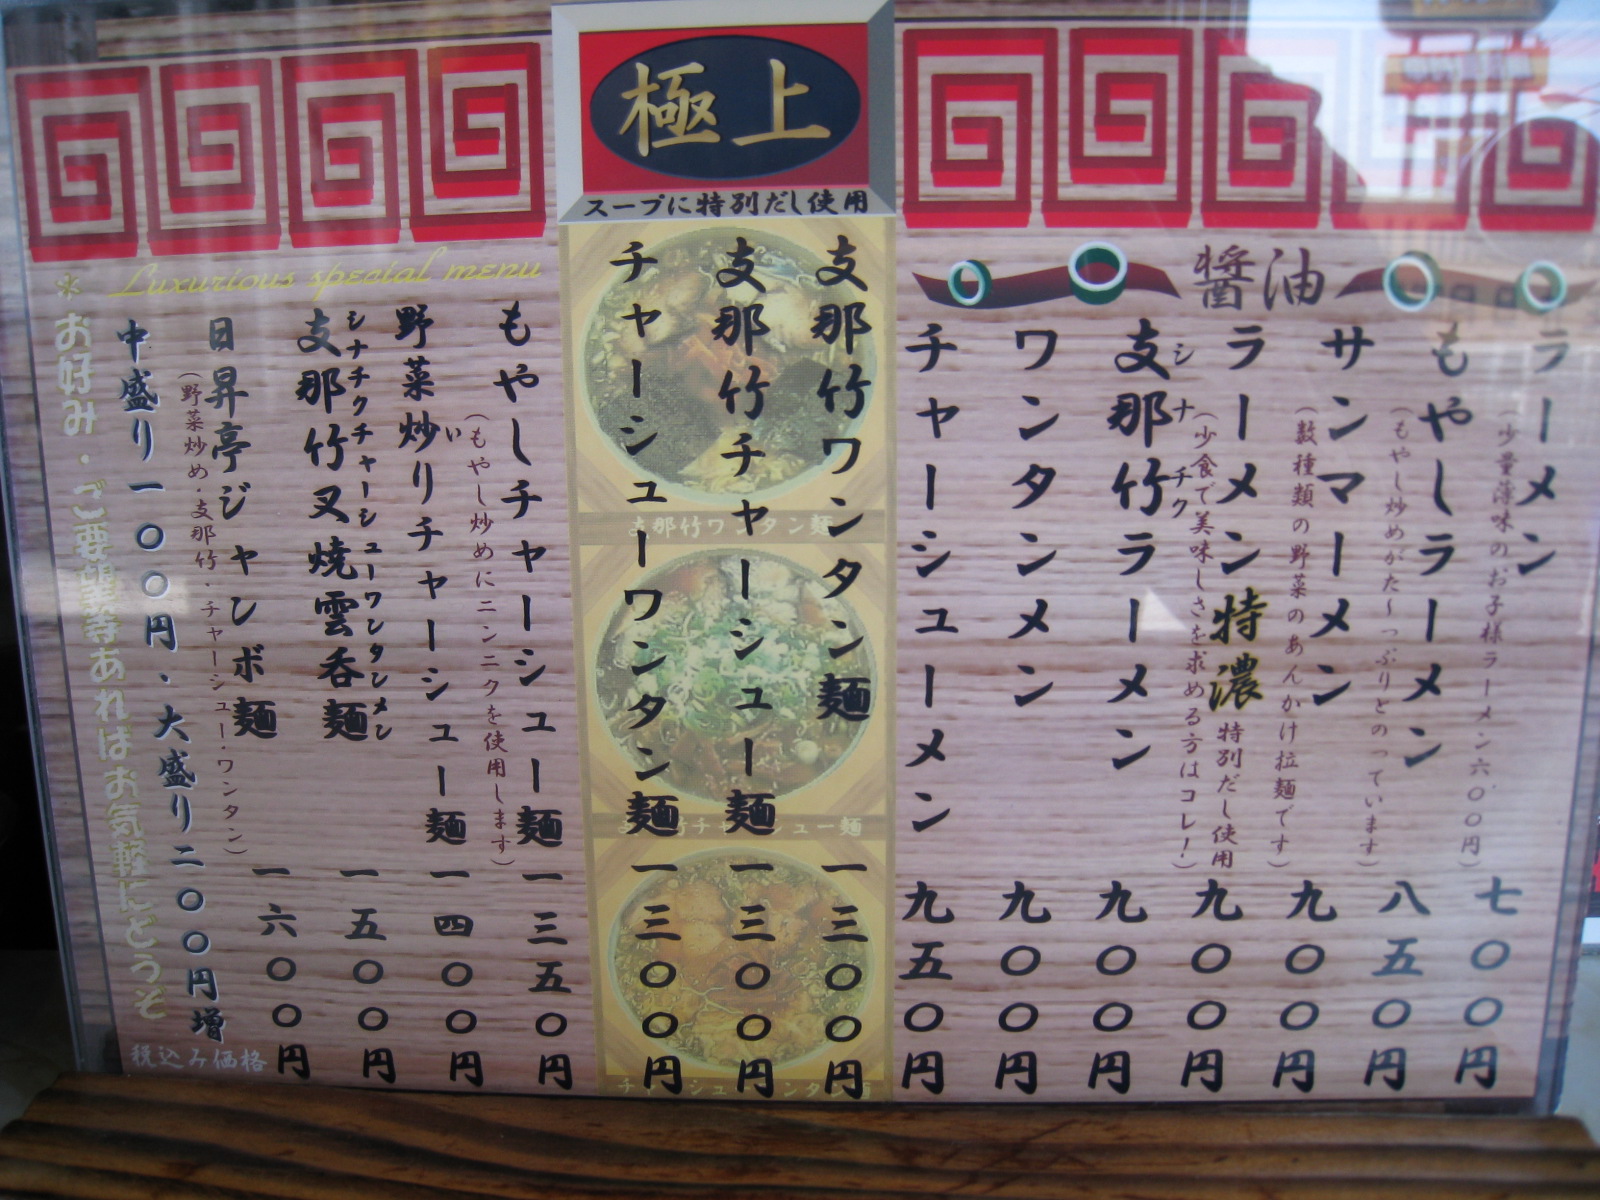 醤油
ラーメン 七〇〇円
(少量薄味のお子様ラーメン六〇〇円)
もやしラーメン 八五〇円
(もやし炒めがた〜っぷりとのっています)
サンマーメン 九〇〇円
(数種類の野菜のあんかけ拉麺です)
ラーメン特濃 特別だし使用 九〇〇円
(少食で美味しさを求める方はコレ!)
支那竹ラーメン 九〇〇円
シナチク
ワンタンメン 九〇〇円
チャーシューメン 九五〇円
極上
スープに特別だし使用
支那竹ワンタン麺 一三〇〇円
支那竹チャーシュー麺 一三〇〇円
チャーシューワンタン麺 一三〇〇円
支那竹ワンタン麺
Luxurious special menu
もやしチャーシュー麺 一三五〇円
(もやし炒めにニンニクを使用します)
野菜炒りチャーシュー麺 一四〇〇円
い
支那竹叉焼雲呑麺 一五〇〇円
シナチクチャーシューワンタンメン
日昇亭ジャンボ麺 一六〇〇円
(野菜炒め・支那竹・チャーシュー・ワンタン)
中盛り一〇〇円・大盛り二〇〇円増
※お好み・ご要望等あればお気軽にどうぞ
税込み価格